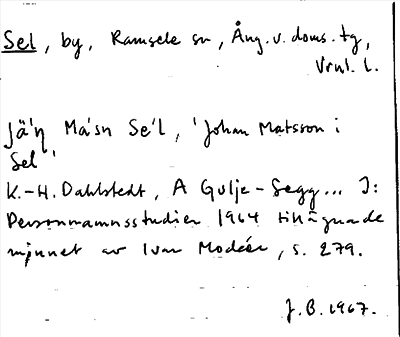 Sel, by, Ramsele sn, Ång. v. doms. tg,
Vrnl. l.
Jä'n Ma'sn Se'l, 'Johan Matsson i
Sel'
K.-H. Dahlstedt, A Gulje-Segg... I:
Personnamnsstudier 1964 tillägnade
minnet av Ivar Modéer, s. 279.
J.B. 1967.